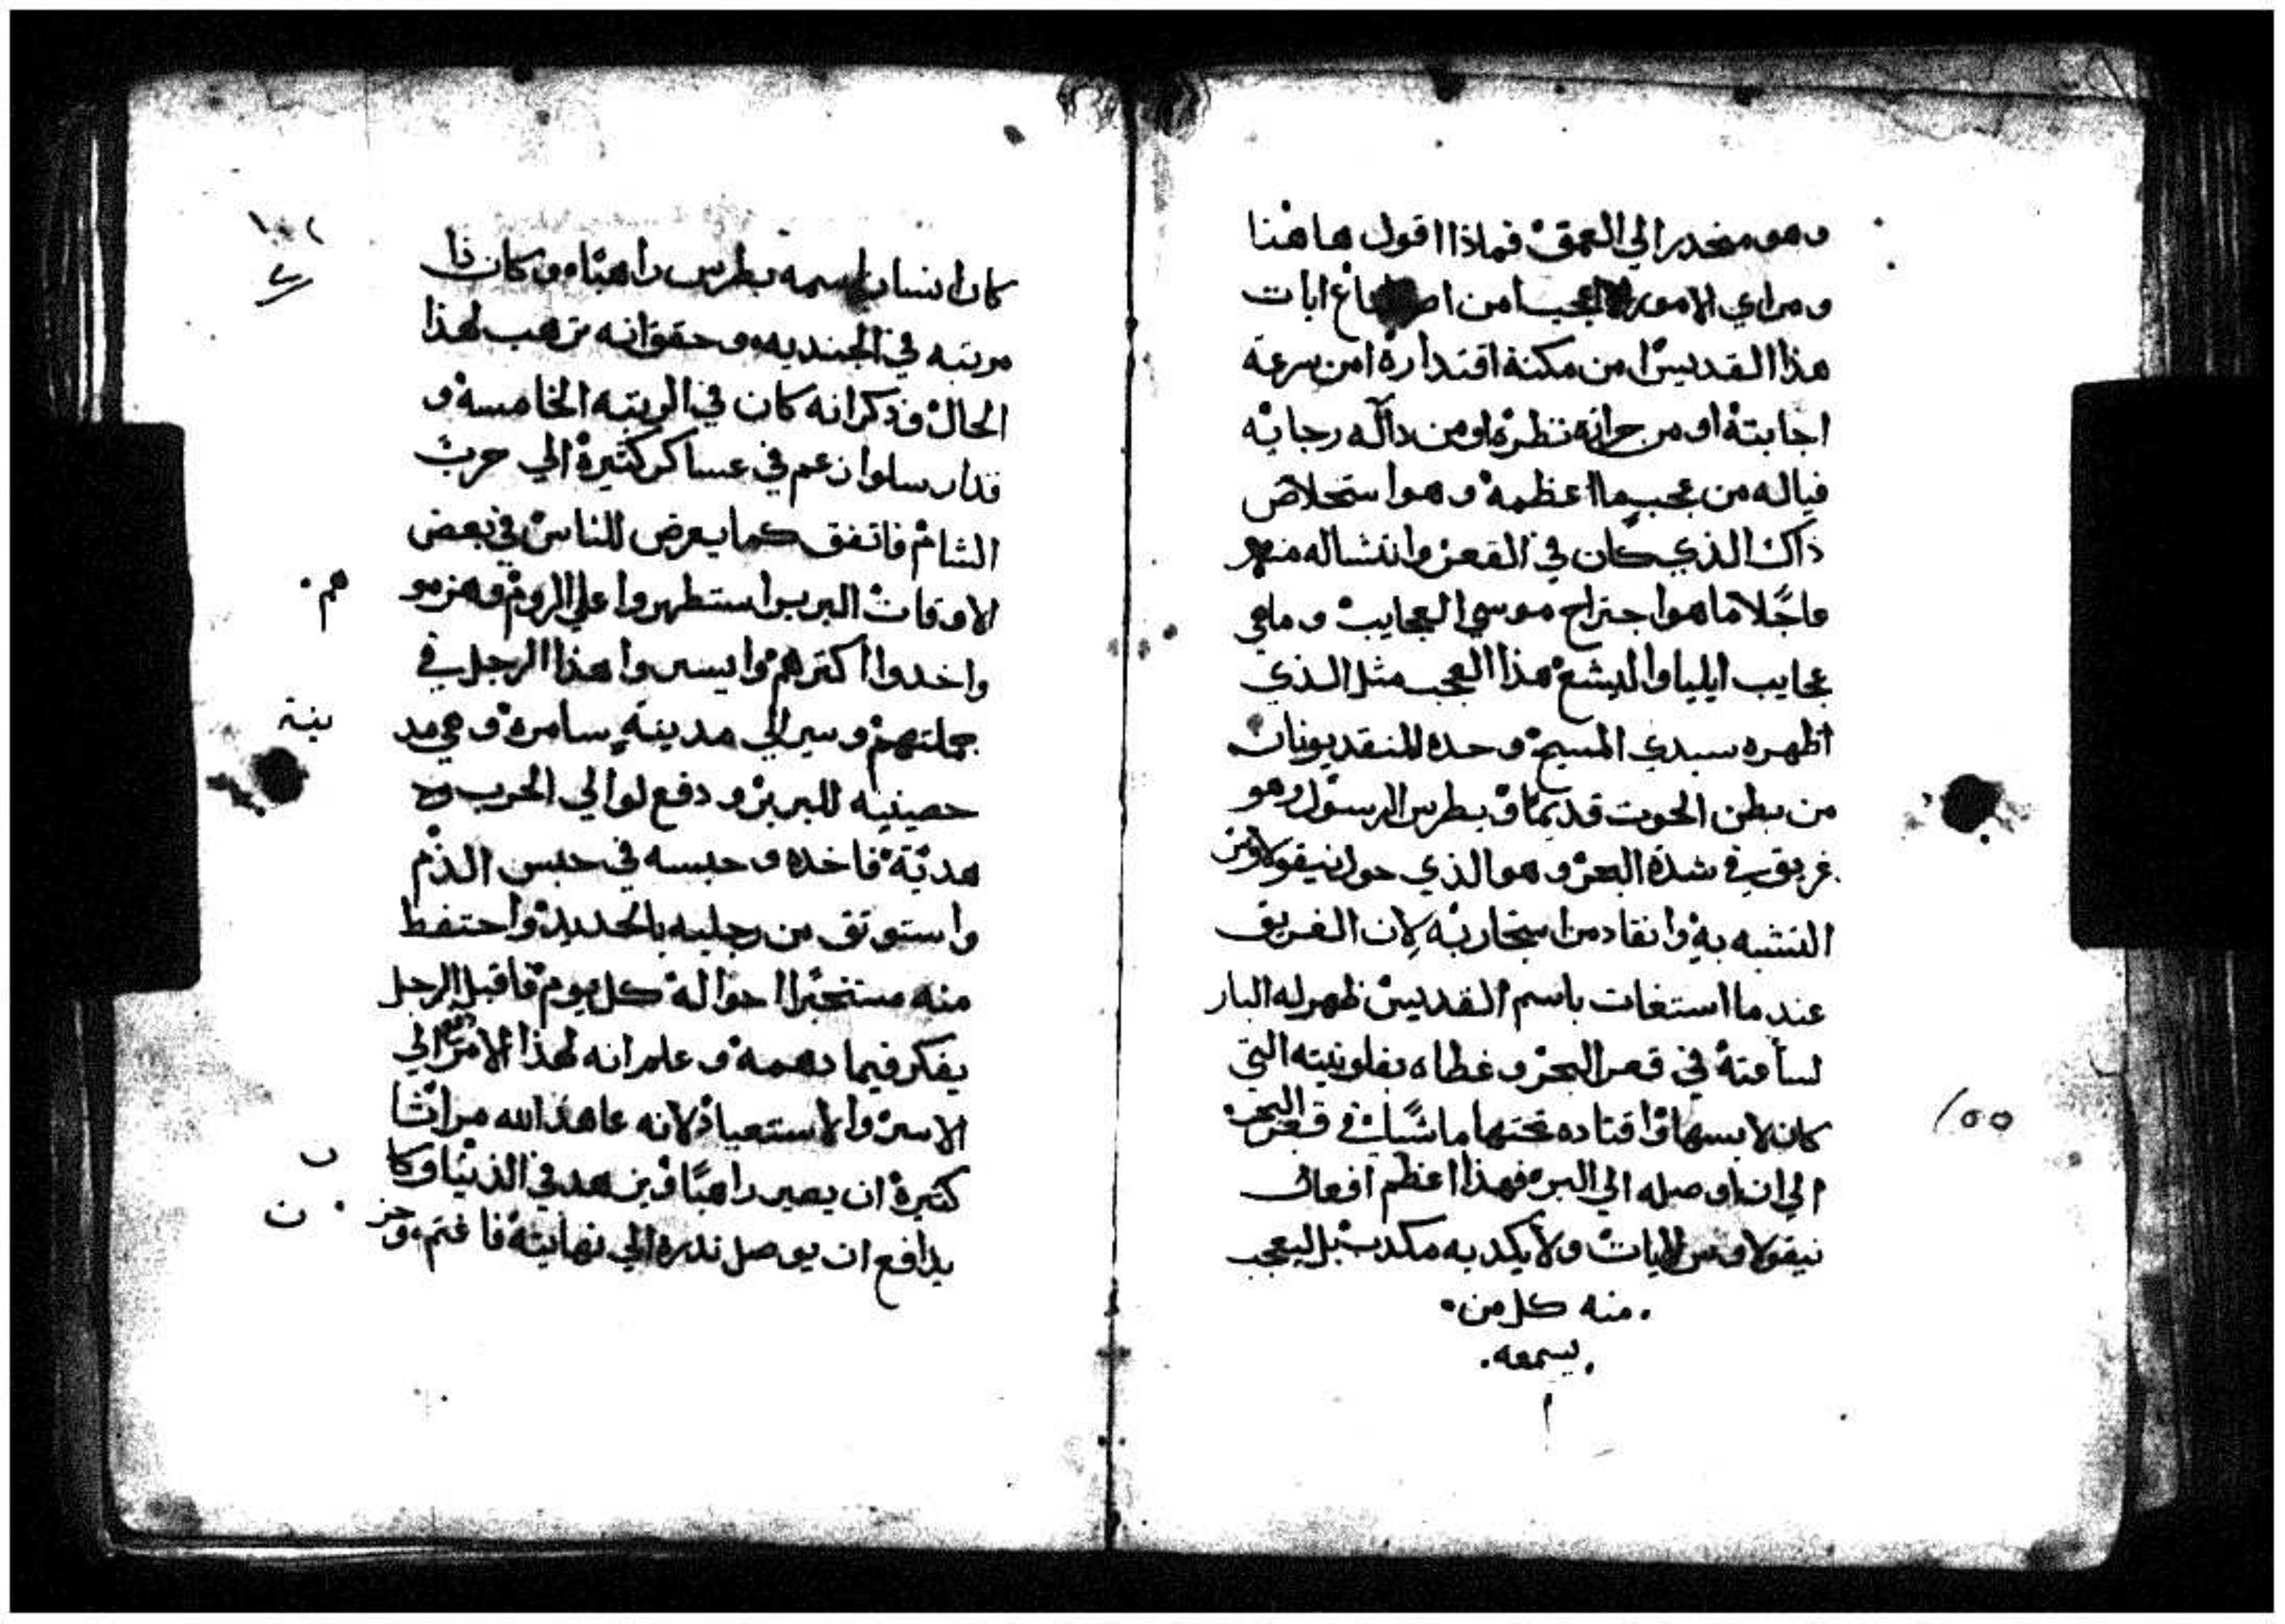 وهو منحدر الي العمق فماذا اقول هاهنا
ومن اي الامور اعجب امن ابات
هذا القديس امن مكنة اقتداره امن سرعة
اجابته او من حرارة نظره او من دالّه رجايه
فياله من عجبٍ ما اعظمه وهو استخلاص
ذاك الذي كان في القعر وانتشاله منه
ما هو اجتراح موسي العجايب وما هي
عجايب ايليا واليشع هذا العجب مثل الذي
اظهره سيدي المسيح وحده المنقد يونان
من بطن الحوت قديمًا وبطرس الرسول وهو
غريق في شدة البحر وهو الذي خول نيقولاوس
التشبه به وانقاد من استجار به لان الغريق
عندما استغات باسم القديس ظهر له البار
لساعته في قعر البحر وغطاه بفلونيته التي
كان لابسها واقتاده تحتها ماشيًا في قعر البحر
الي ان اوصله الي البر فهذا اعظم افعال
نيقولاوس ولا يكدبه مكدب بل ليعجب
منه كل من
يسمعه
١٥٥
كان انسان اسمه بطرس راهبًا وكان ذا
مرتبه في الجنديه وحقق انه ترهب لهذا
الحال وذكر انه كان في الرتبه الخامسه و
قد ارسلوا زعم في عساكر كتيرة الي حرب
الشام فاتفق كما يعرض للناس في بعض
الاوقات البربر استظهروا علي الروم وهزمو
هم
واخدوا اكترهم وايسروا هذا الرجل في
جملتهم وسير الي مدينة سامره وهي مد
ينة
حصينيه للبربر ودفع لوالي الحرب
هديّة فاخده وحبسه في حبس الدم
واستوتق من رجليه بالحديد واحتفظ
منه مستخبرًا احواله كل يوم فاقبل الرجل
يفكر فيما دهمه وعلم انه لهذا الامر دفع الي
الاسر والاستعباد لانه عاهد الله مرارًا
كتيرة ان يصير راهبًا ويزهد في الدنيا وكا
ن
يدافع ان يوصل ندره الي نهايته فاغتم وحز
ن